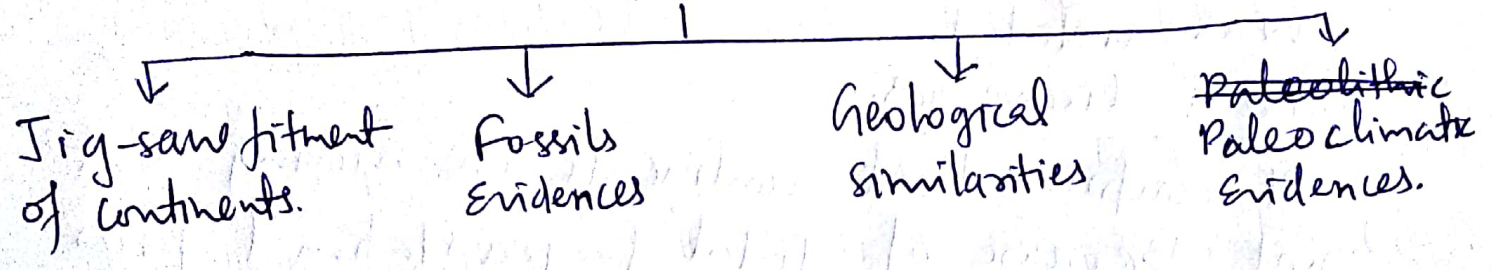 Jig-saw fitment
of continents.
Fossils
Evidences
Geological
Similarities
Paleolithic
Paleoclimatic
Evidences.